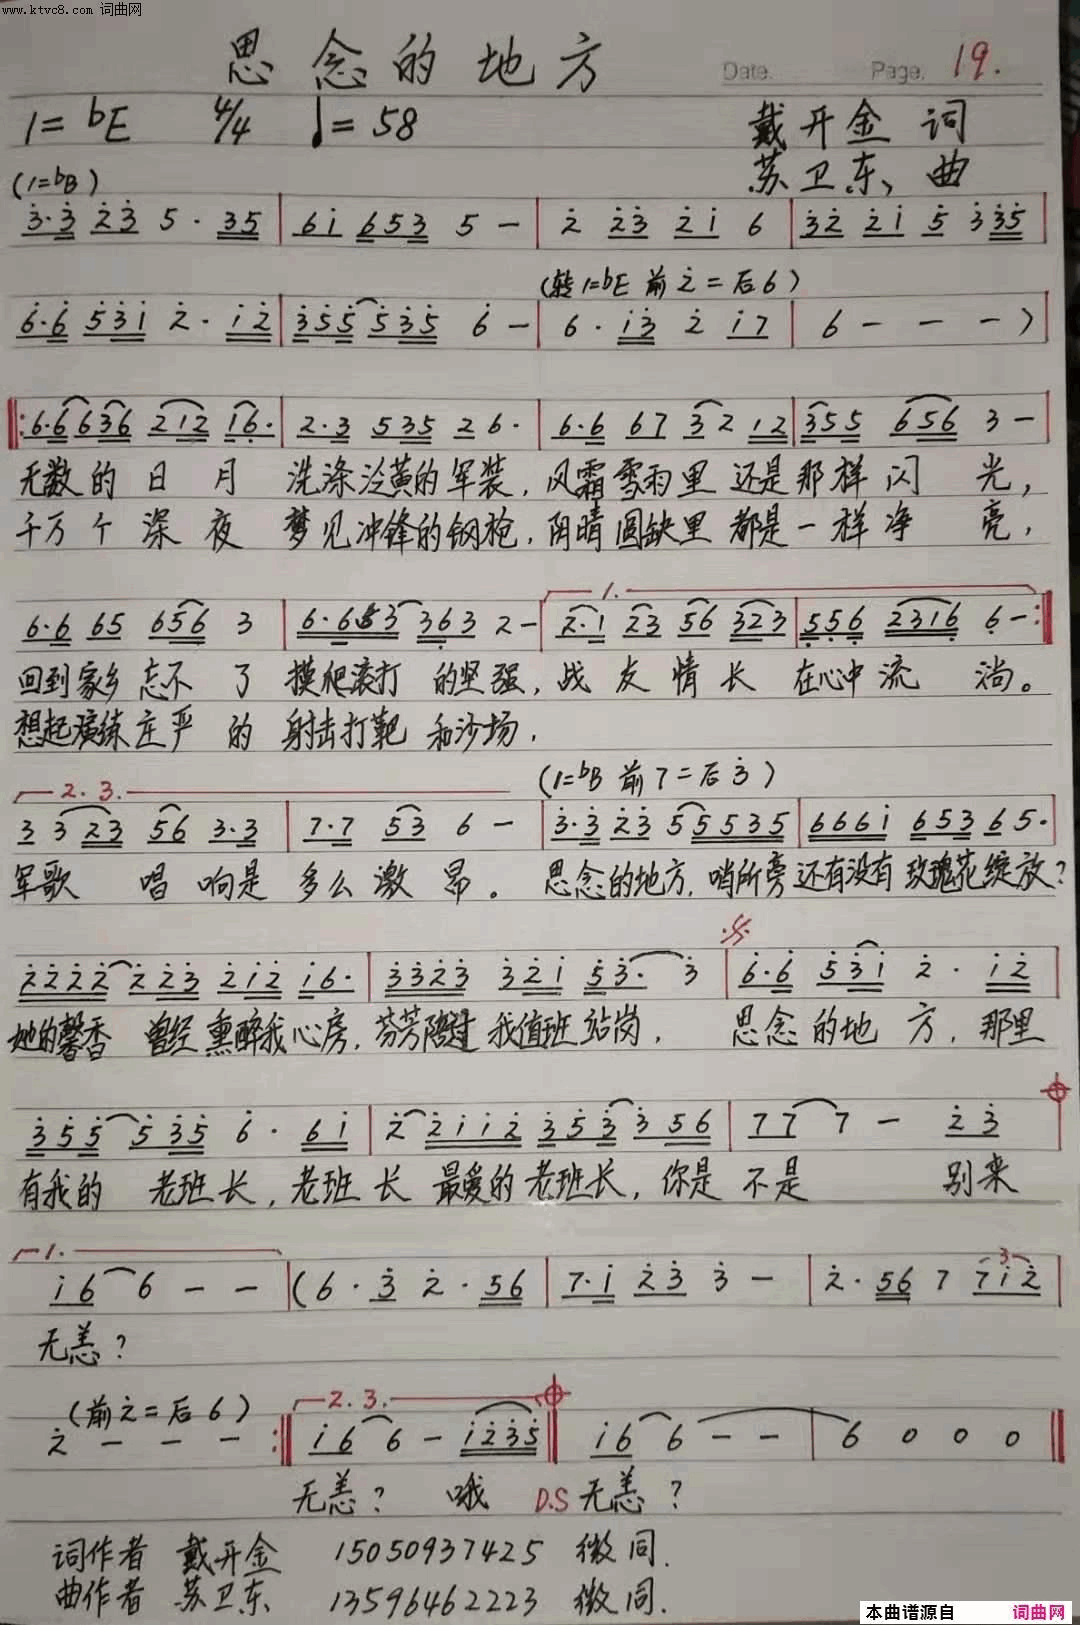 www.ktvc8.com 词曲网
思念的地方
Date. Page. 19.
1=bE 4/4 ♩=58 戴开金 词
苏卫东、曲
(1=bB)
3·3 23 5·35 | 61 653 5 - | 2 23 21 6 | 32 21 5 335 |
(转1=bE 前2=后6)
6·6 531 2·12 | 355 535 6 - | 6·13 2 17 | 6 - - - )
‖:6·6636 212 16· | 2·3 535 2 6· | 6·6 67 32 12 | 355 656 3 - |
无数的日月 洗涤泛黄的军装,风霜雪雨里 还是那样闪 光,
千万个深夜 梦见冲锋的钢枪,阴晴圆缺里 都是一样净 亮,
1.
6·6 65 656 3 | 6·653 363 2 - | 2·1 23 56 323 | 556 2316 6 - :‖
回到家乡忘不了 摸爬滚打 的坚强,战友情长 在心中流 淌。
想起演练庄严的 射击打靶 和沙场,
2.3. (1=bB 前7=后3)
3 3 23 56 3·3 | 7·7 53 6 - | 3·3 23 5 5535 | 6661 653 6 5· |
军歌 唱响是 多么激昂。思念的地方,哨所旁还有没有玫瑰花绽放?
2222 223 212 16· | 3323 321 53· 3 | 6·6 531 2· 12 |
她的馨香 曾经熏醉我心房,芬芳陪过 我值班站岗, 思念的地方,那里
355 535 6· 61 | 2 2112 353 356 | 77 7 - 23 |
有我的 老班长,老班长 最爱的老班长,你是不是 别来
1.
16 6 - - | (6·3 2·56 | 7·1 23 3 - | 2·56 7 712 |
3
无恙?
(前2=后6) 2.3.
2 - - - :‖ 16 6 - 1235 ‖ 16 6 - - | 6 0 0 0 ‖
无恙? 哦 D.S 无恙?
词作者 戴开金 15050937425 微同.
曲作者 苏卫东 13596462223 微同.
本曲谱源自 词曲网